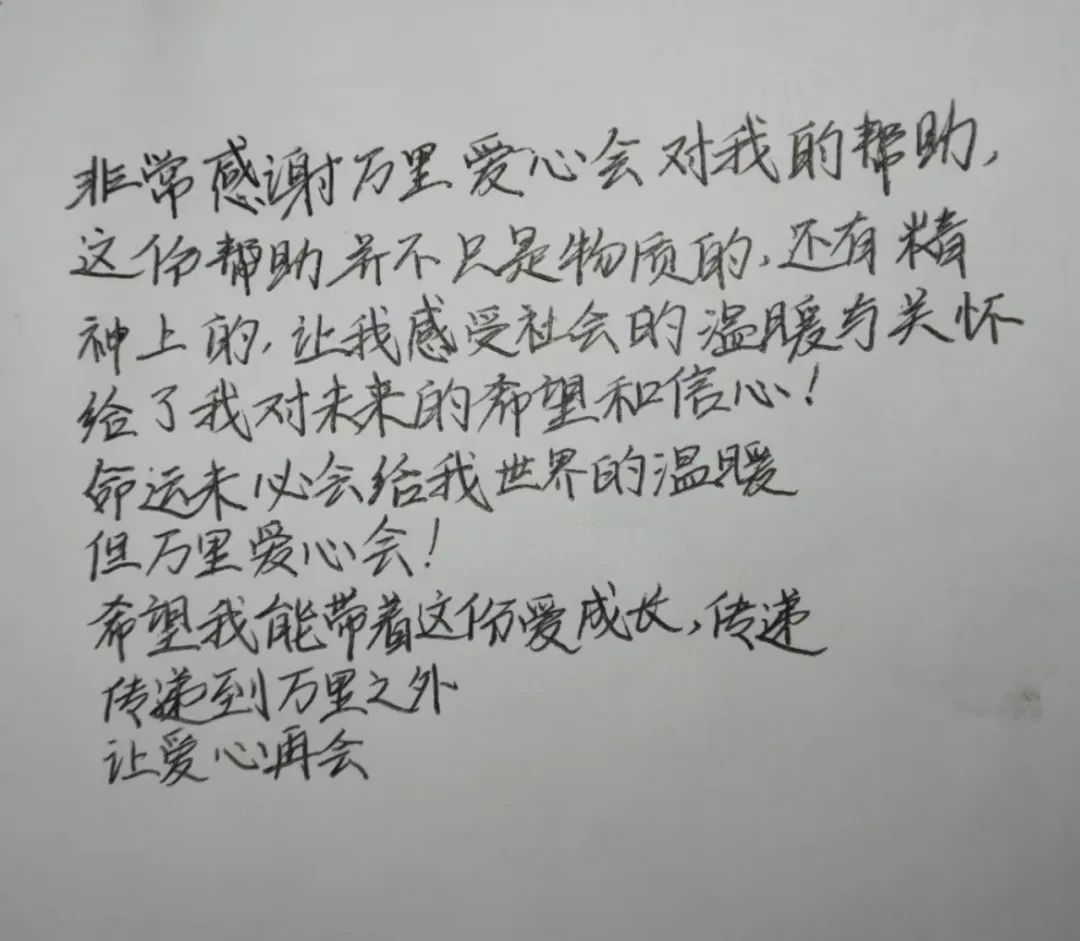 非常感谢万里爱心会对我的帮助,
这份帮助并不只是物质的,还有精
神上的,让我感受社会的温暖与关怀
给了我对未来的希望和信心!
命运未必会给我世界的温暖
但万里爱心会!
希望我能带着这份爱成长,传递
传递到万里之外
让爱心再会